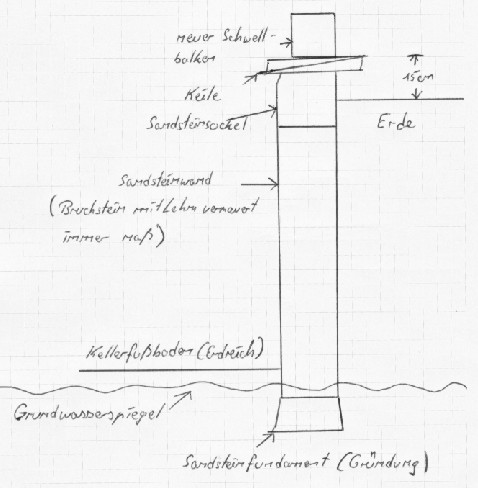 neuer Schwell-
balken
15cm
Keile
Sandsteinsockel
Erde
Sandsteinwand
(Bruchstein mit Lehm vermauert
immer naß)
Kellerfußboden (Erdreich)
Grundwasserspiegel
Sandsteinfundament (Gründung)